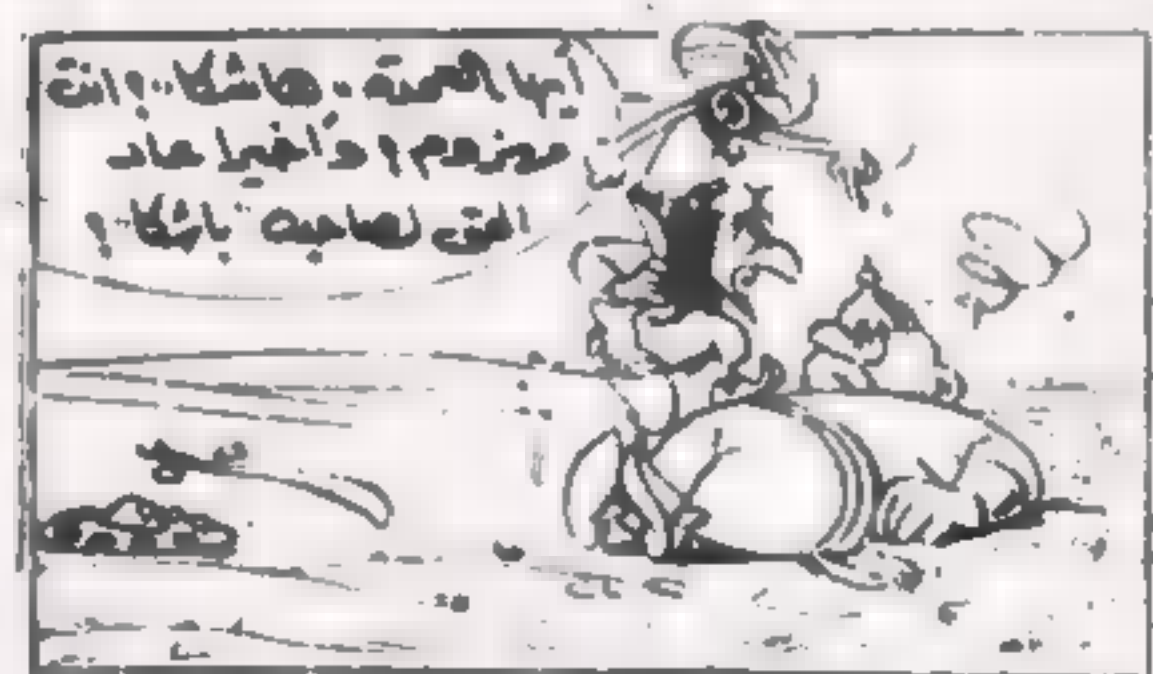 أيها القصية .. هاشكا ..! انت
مهزوم! وأخيرا عاد
الحق لصاحبه "باشكا"!